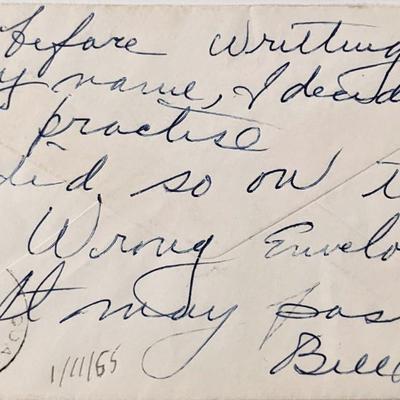 Before writting
y name, I decid
practise
did so on t
Wrong Envelo
It may pas
Bill
1/11/65